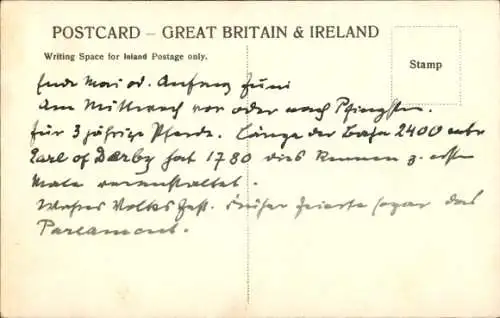 POSTCARD – GREAT BRITAIN & IRELAND
Writing Space for Inland Postage only.
Stamp
Ende Mai od. Anfang Juni
Am Mittwoch vor oder nach Pfingsten.
für 3 jährige Pferde. Länge der Bahn 2400 mtr
Earl of Darby hat 1780 dies Rennen z. ersten
Male veranstaltet.
Wahres Volksfest. Früher feierte sogar das
Parlament.